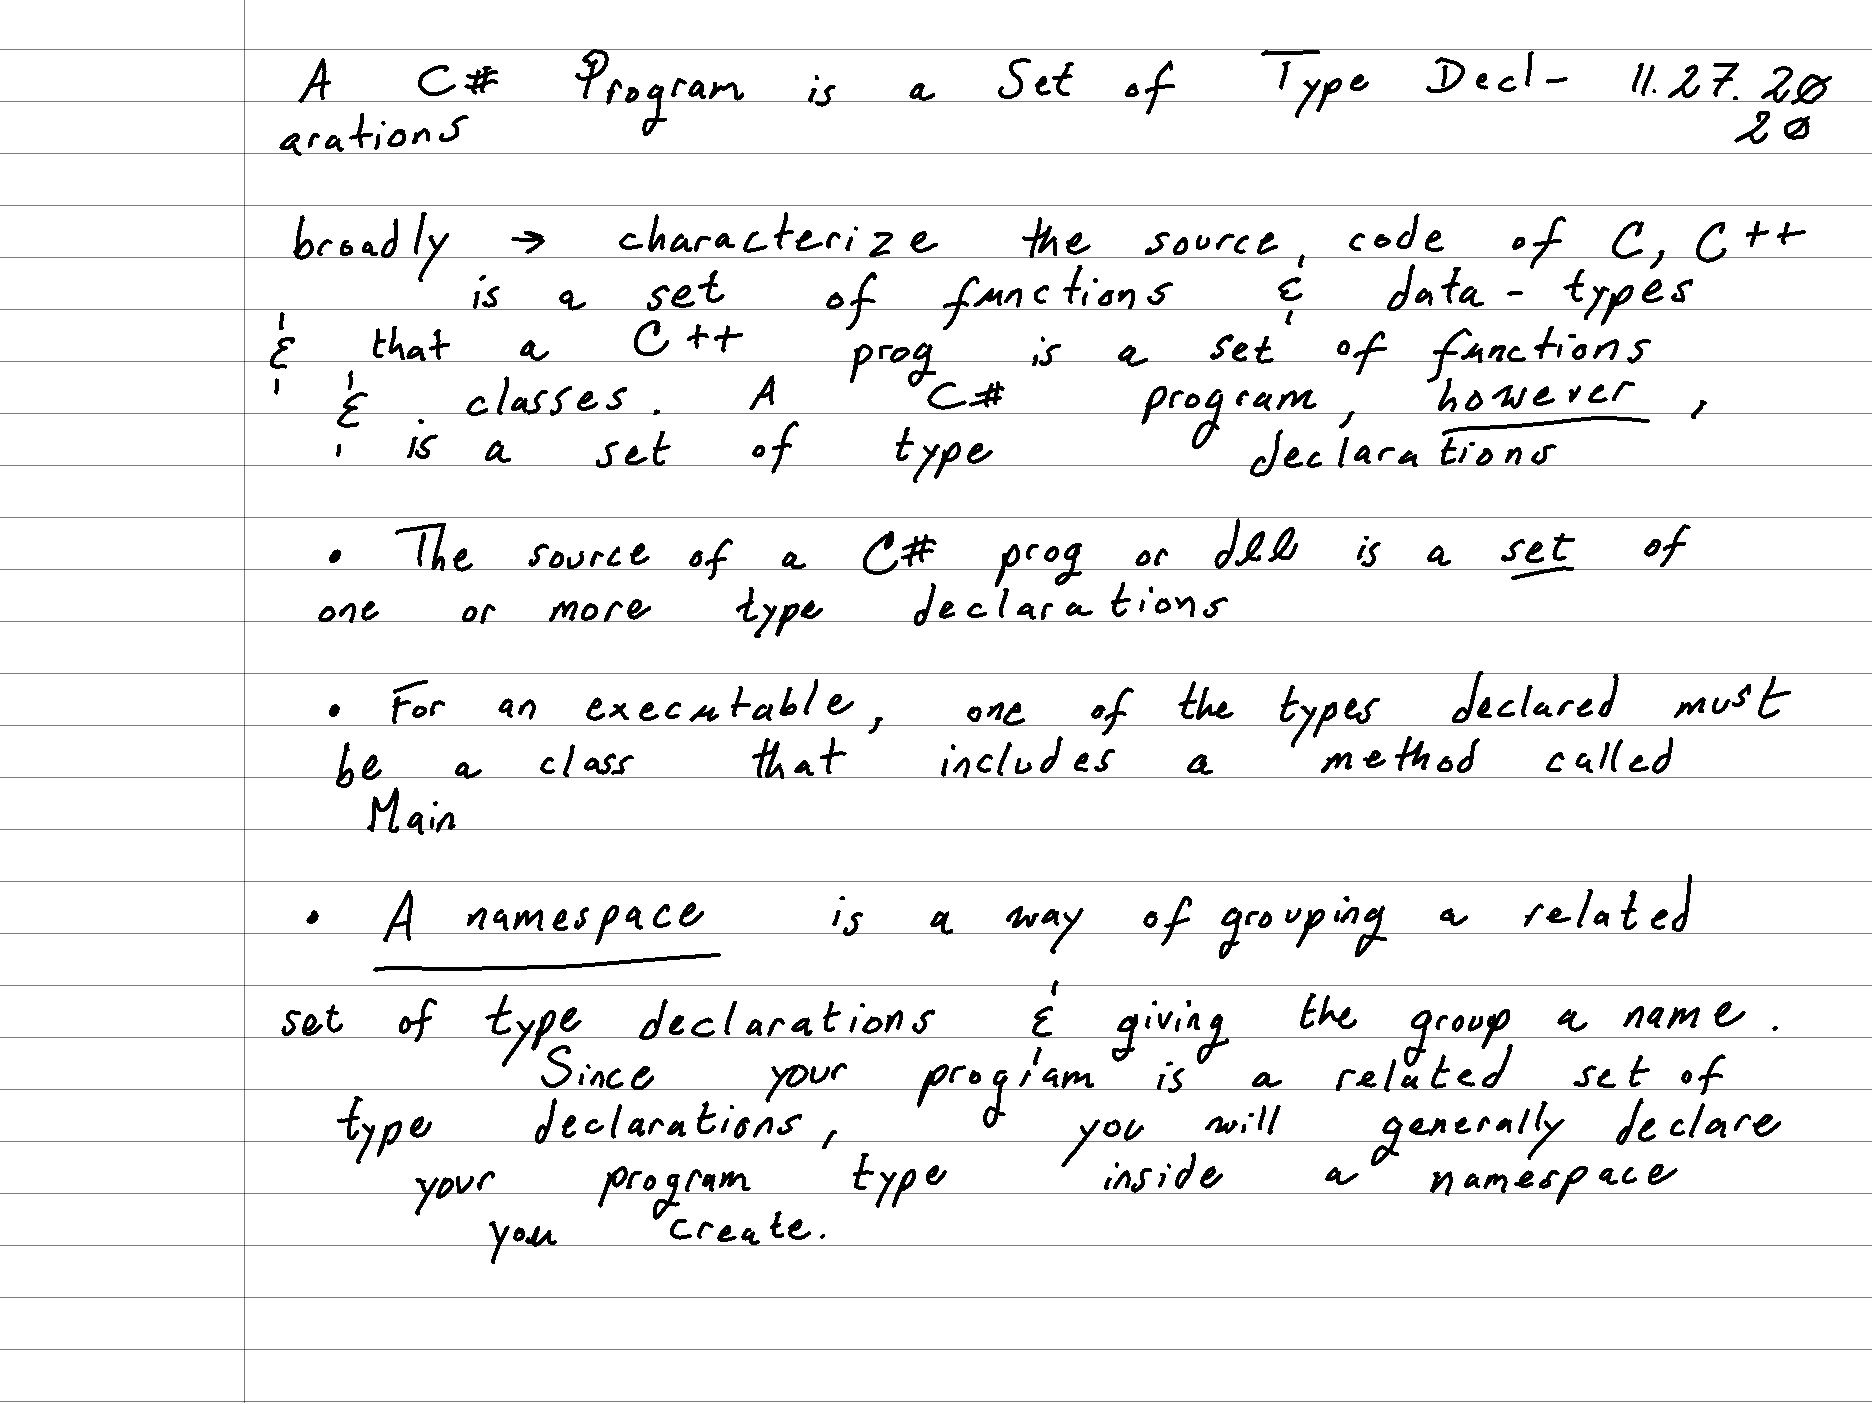 A C# Program is a Set of Type Decl- 11.27.20
arations 20
broadly → characterize the source code of C, C++
is a set of functions & data-types
& that a C++ prog is a set of functions
& classes. A C# program, however,
is a set of type declarations
• The source of a C# prog or dll is a set of
one or more type declarations
• For an executable, one of the types declared must
be a class that includes a method called
Main
• A namespace is a way of grouping a related
set of type declarations & giving the group a name.
Since your program is a related set of
type declarations, you will generally declare
your program type inside a namespace
you create.